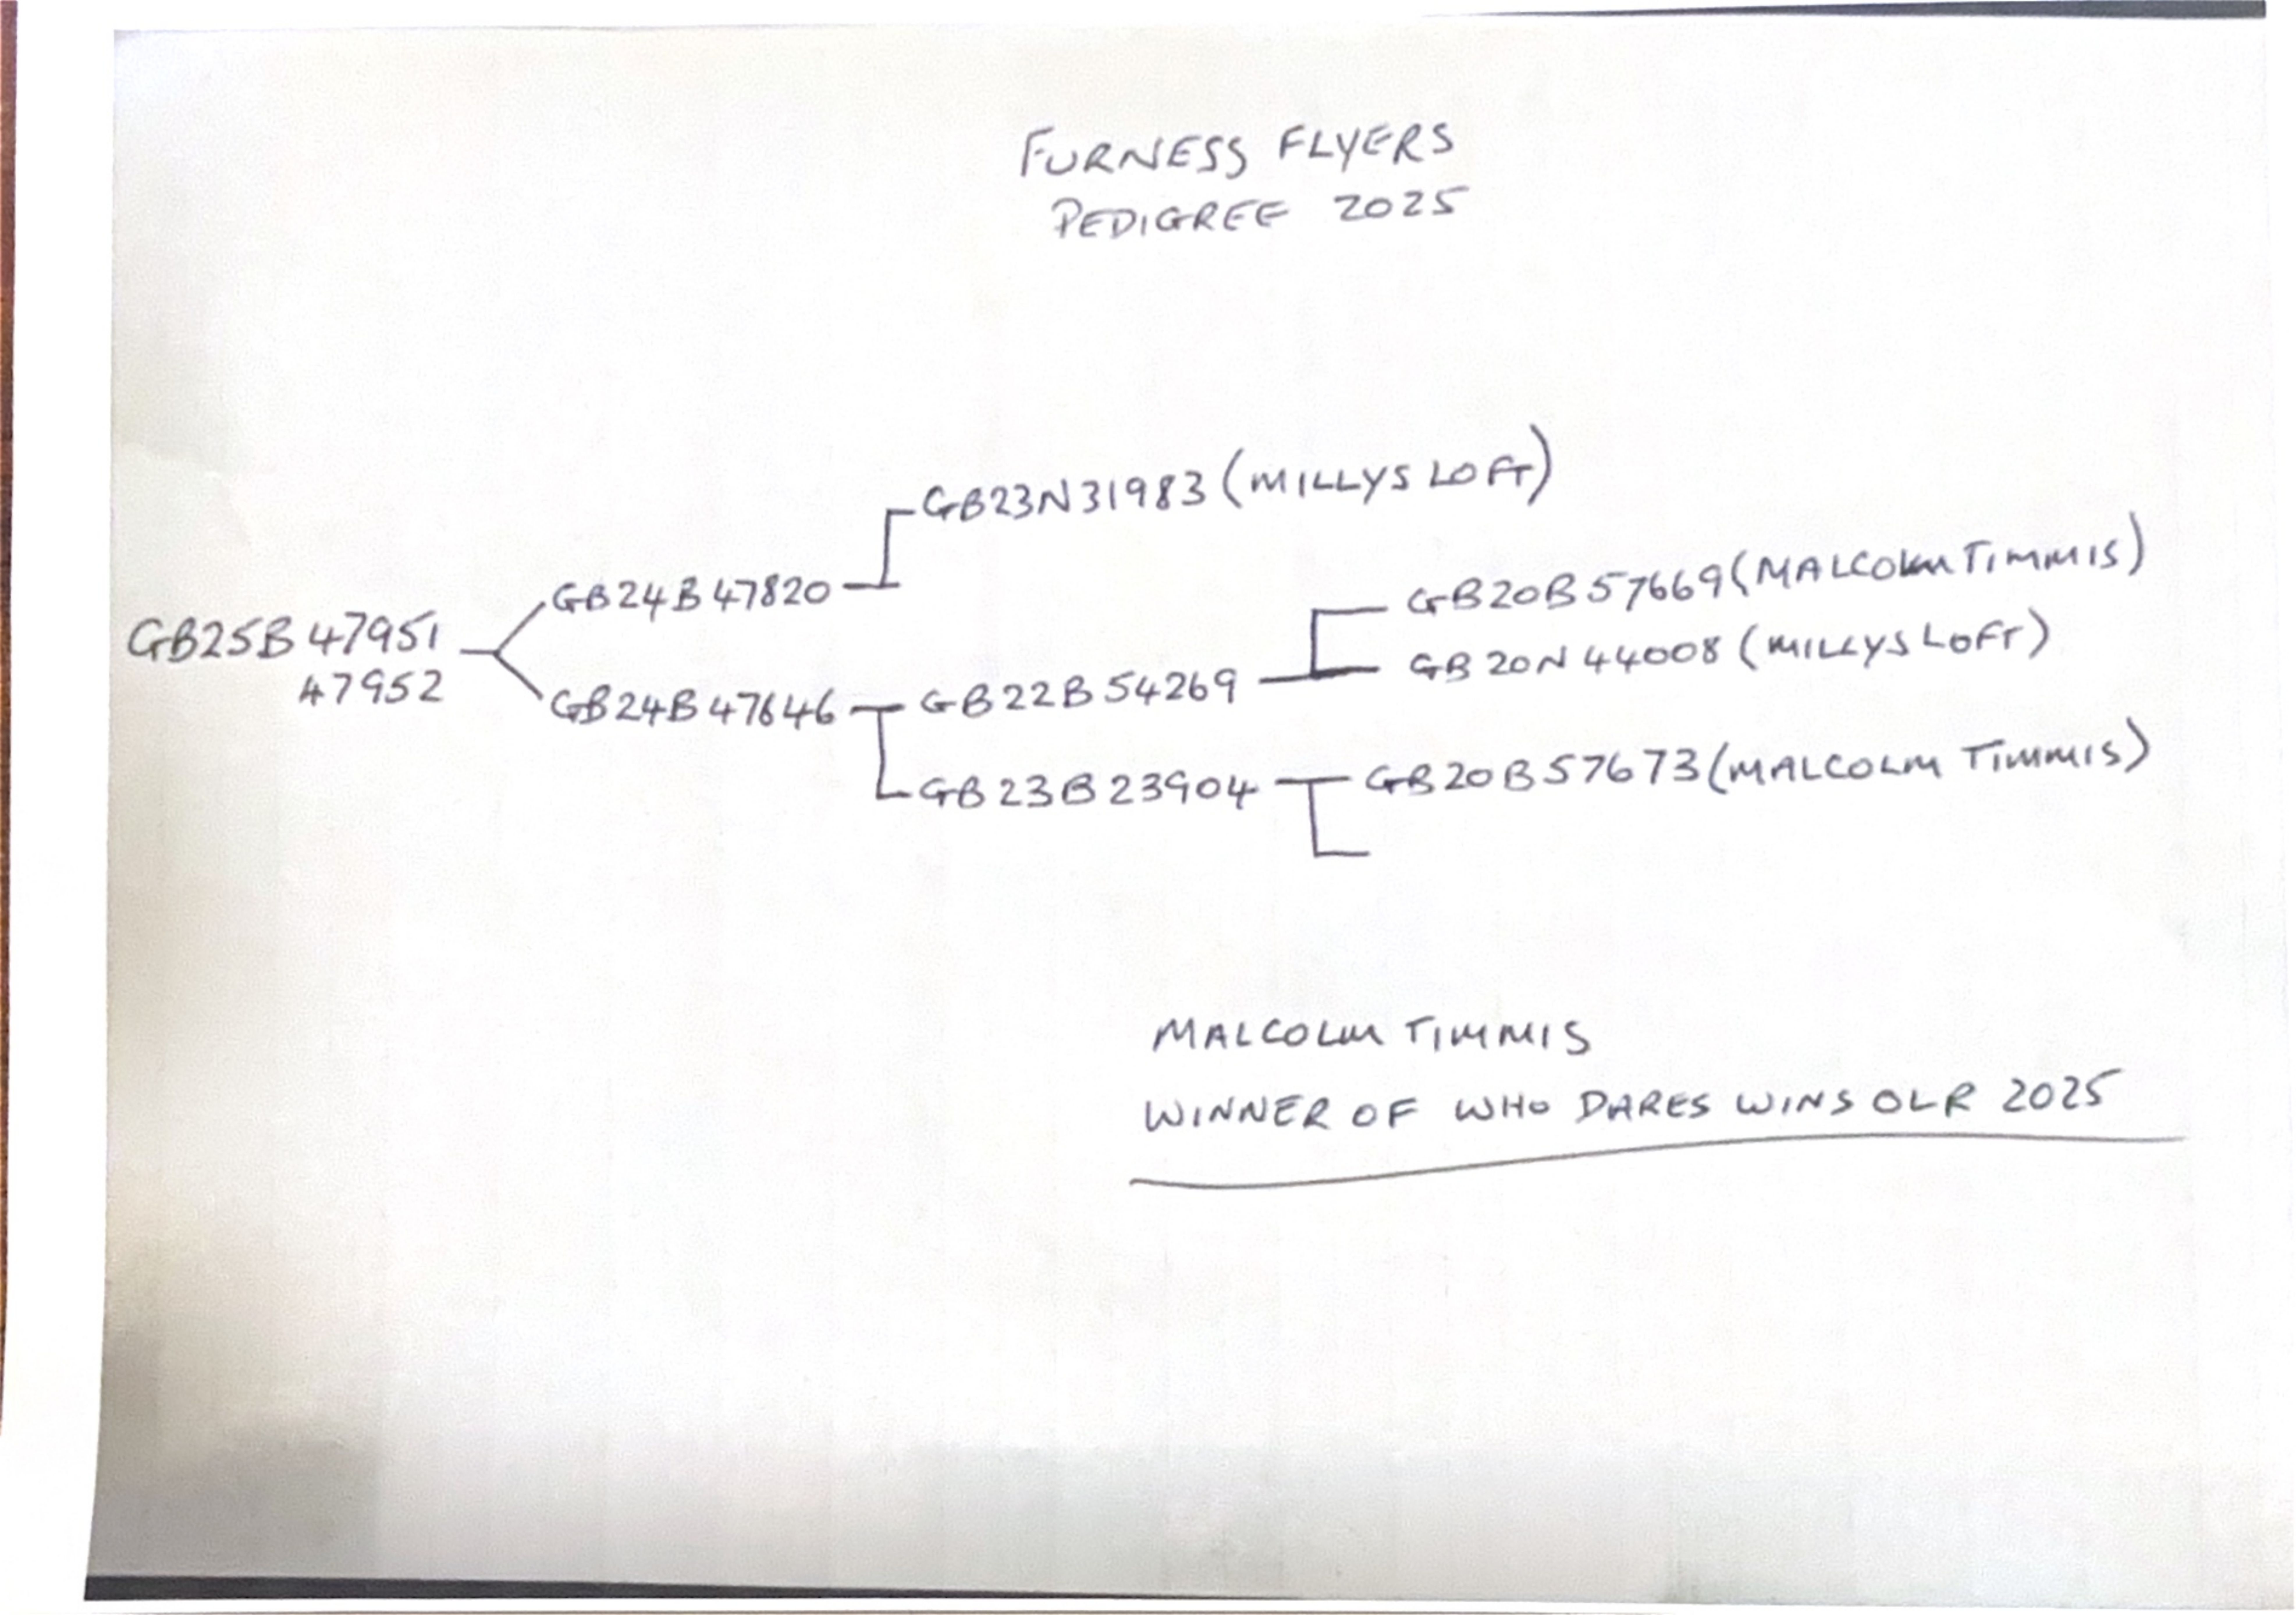 FURNESS FLYERS
PEDIGREE 2025
GB23N31983 (MILLYS LOFT)
GB24B47820
GB20B57669 (MALCOLM TIMMIS)
GB25B47951
47952
GB20N44008 (MILLYS LOFT)
GB24B47646
GB22B54269
GB23B23904
GB20B57673 (MALCOLM TIMMIS)
MALCOLM TIMMIS
WINNER OF WHO DARES WINS OLR 2025